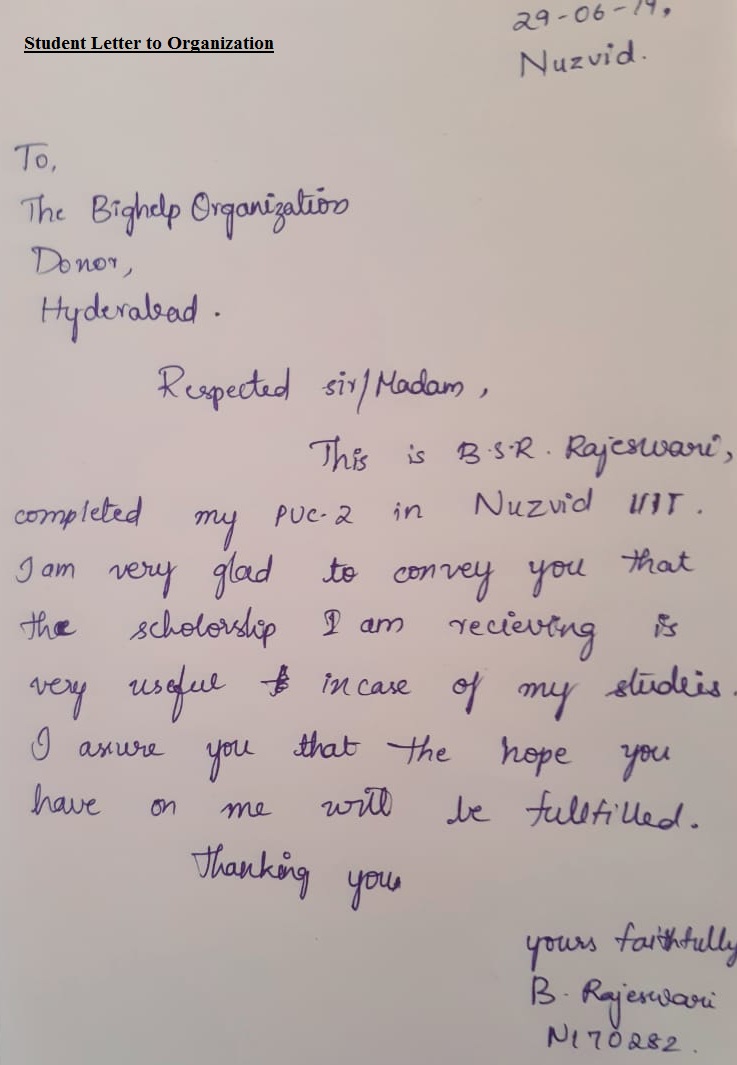 Student Letter to Organization
29-06-19,
Nuzvid.
To,
The Bighelp Organization
Donor,
Hyderabad.
Respected sir/Madam,
This is B.S.R. Rajeswari,
completed my PUC-2 in Nuzvid IIIT.
I am very glad to convey you that
the scholorship I am recieving is
very useful in case of my studeis.
I assure you that the hope you
have on me will be fullfilled.
Thanking you
yours faithfully
B. Rajeswari
N170282.